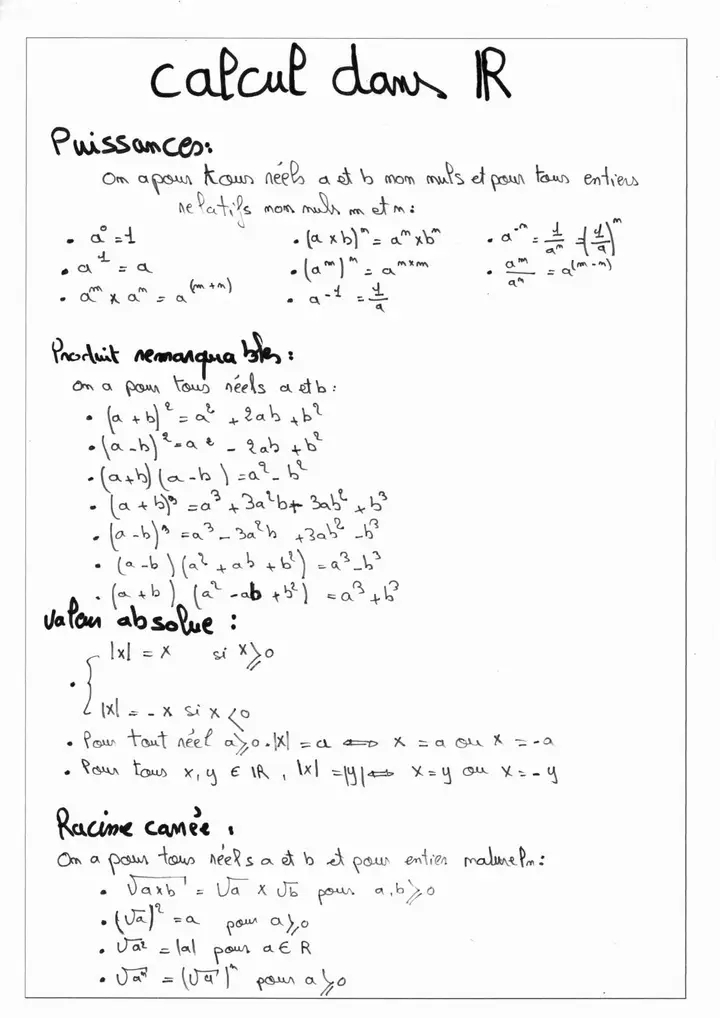 Calcul dans ℝ
Puissances:
On a pour tous réels a et b non nuls et pour tous entiers
relatifs non nuls m et n:
• a⁰ = 1 • (a × b)ⁿ = aⁿ × bⁿ • a⁻ⁿ = 1/aⁿ = (1/a)ⁿ
• a¹ = a • (aᵐ)ⁿ = aᵐˣⁿ • aᵐ/aⁿ = a⁽ᵐ⁻ⁿ⁾
• aᵐ × aⁿ = a⁽ᵐ⁺ⁿ⁾ • a⁻¹ = 1/a
Produit remarquables:
On a pour tous réels a et b:
• (a + b)² = a² + 2ab + b²
• (a - b)² = a² - 2ab + b²
• (a+b)(a-b) = a² - b²
• (a + b)³ = a³ + 3a²b + 3ab² + b³
• (a - b)³ = a³ - 3a²b + 3ab² - b³
• (a-b)(a² + ab + b²) = a³ - b³
• (a+b)(a² - ab + b²) = a³ + b³
Valeur absolue :
• { |x| = x si x ⩾ 0
|x| = -x si x ⩽ 0
• Pour tout réel a ⩾ 0. |x| = a ⟺ x = a ou x = -a
• Pour tous x, y ∈ ℝ, |x| = |y| ⟺ x = y ou x = -y
Racine carrée :
On a pour tous réels a et b et pour entier naturel n:
• √(a×b) = √a × √b pour a,b ⩾ 0
• (√a)² = a pour a ⩾ 0
• √a² = |a| pour a ∈ R
• √aⁿ = (√a)ⁿ pour a ⩾ 0